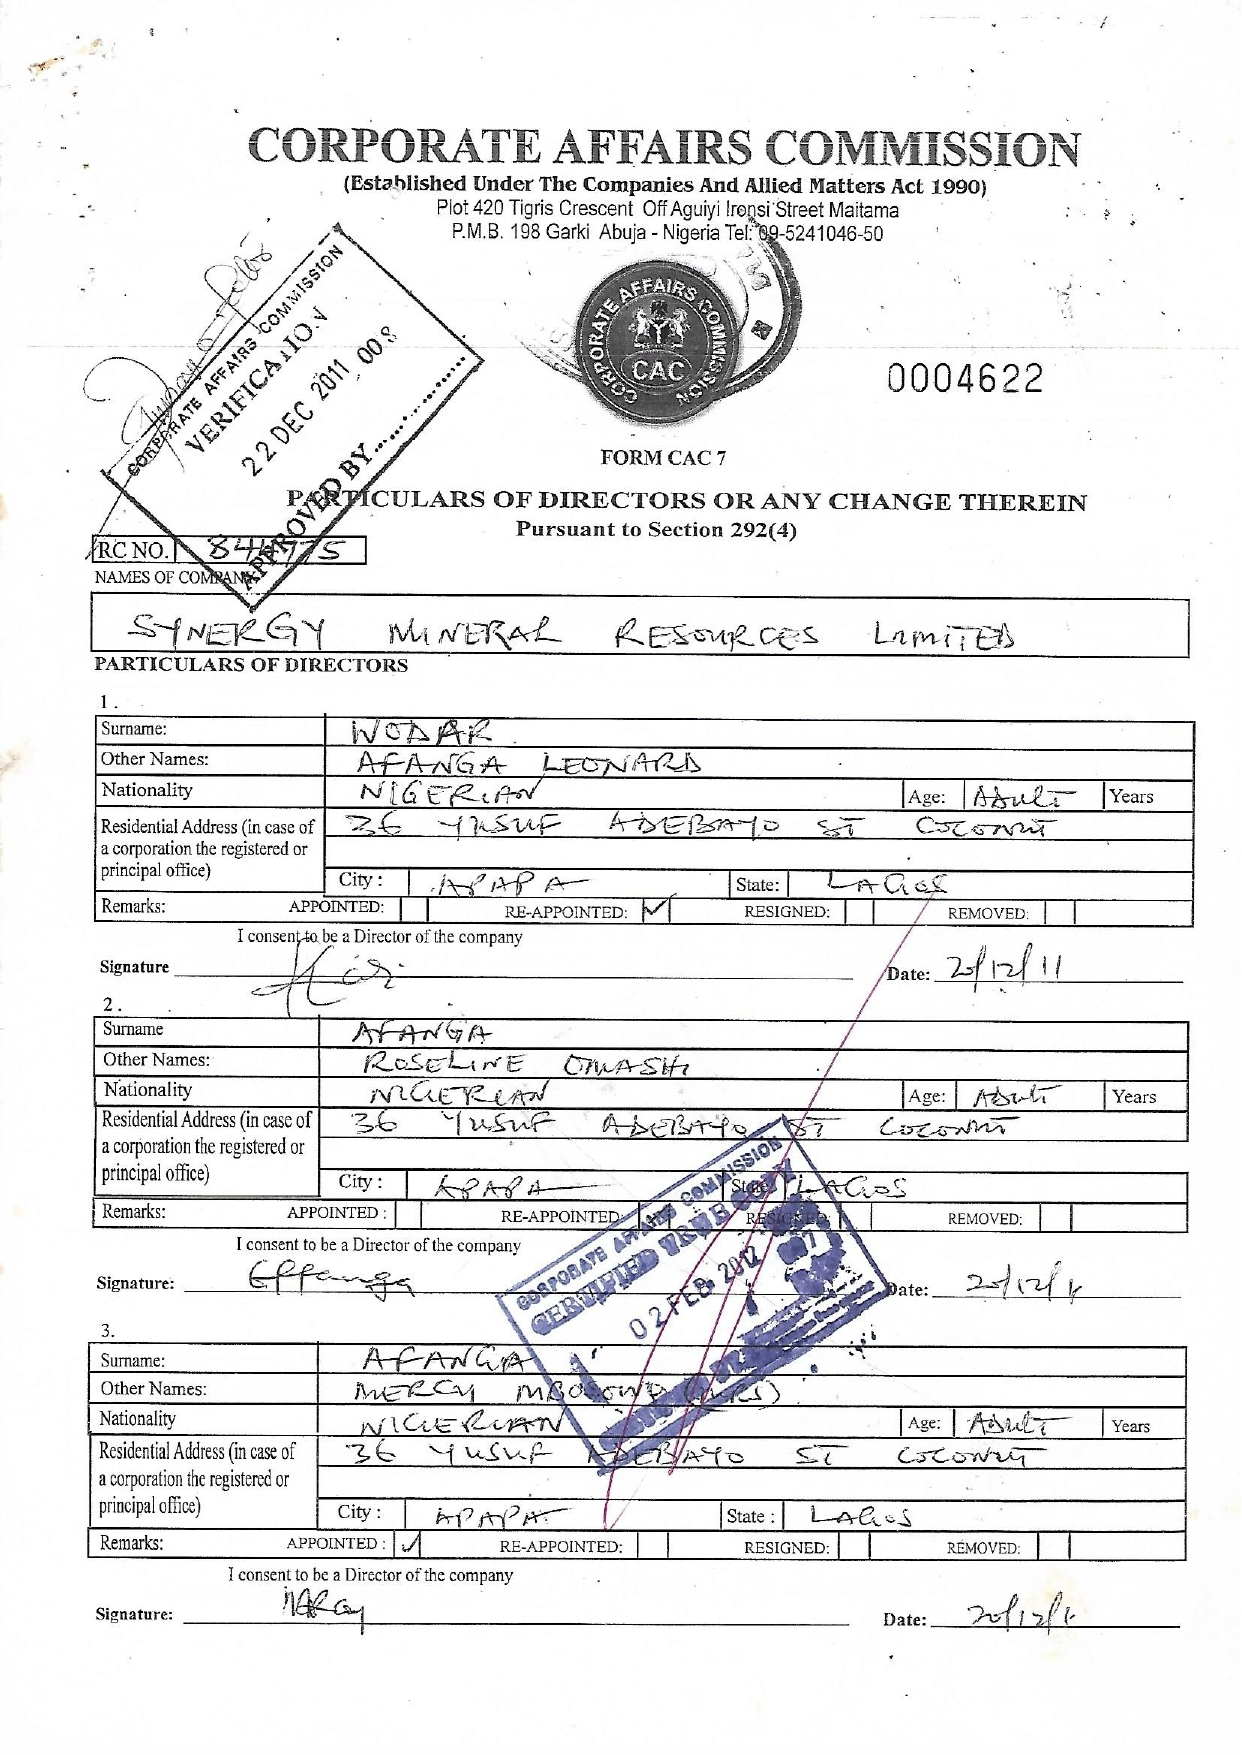 CORPORATE AFFAIRS COMMISSION
(Established Under The Companies And Allied Matters Act 1990)
Plot 420 Tigris Crescent Off Aguiyi Ironsi Street Maitama
P.M.B. 198 Garki Abuja - Nigeria Tel: 09-5241046-50
CORPORATE AFFAIRS COMMISSION
VERIFICATION
22 DEC 2011 008
APPROVED BY
CORPORATE AFFAIRS COMMISSION
CAC
0004622
FORM CAC 7
PARTICULARS OF DIRECTORS OR ANY CHANGE THEREIN
Pursuant to Section 292(4)
RC NO.
NAMES OF COMPANY
SYNERGY MINERAL RESOURCES LIMITED
PARTICULARS OF DIRECTORS
1.
Surname: WODAR
Other Names: AFANGA LEONARD
Nationality NIGERIAN Age: ADULT Years
Residential Address (in case of 36 YUSUF ADEBAYO ST COCONUT
a corporation the registered or
principal office) City : APAPA State: LAGOS
Remarks: APPOINTED: RE-APPOINTED: ✓ RESIGNED: REMOVED:
I consent to be a Director of the company
Signature Date: 20/12/11
2.
Surname AFANGA
Other Names: ROSELINE OMASHI
Nationality NIGERIAN Age: ADULT Years
Residential Address (in case of 36 YUSUF ADEBAYO ST COCONUT
a corporation the registered or
principal office) City : APAPA State: LAGOS
Remarks: APPOINTED : RE-APPOINTED: RESIGNED: REMOVED:
I consent to be a Director of the company
CORPORATE AFFAIRS COMMISSION
CERTIFIED TRUE COPY
02 FEB 2012
Signature: Effanga Date: 20/12/11
3.
Surname: AFANGA
Other Names: MERCY (MRS)
Nationality NIGERIAN Age: ADULT Years
Residential Address (in case of 36 YUSUF ADEBAYO ST COCONUT
a corporation the registered or
principal office) City : APAPA State : LAGOS
Remarks: APPOINTED : ✓ RE-APPOINTED: RESIGNED: REMOVED:
I consent to be a Director of the company
Signature: Mercy Date: 20/12/11